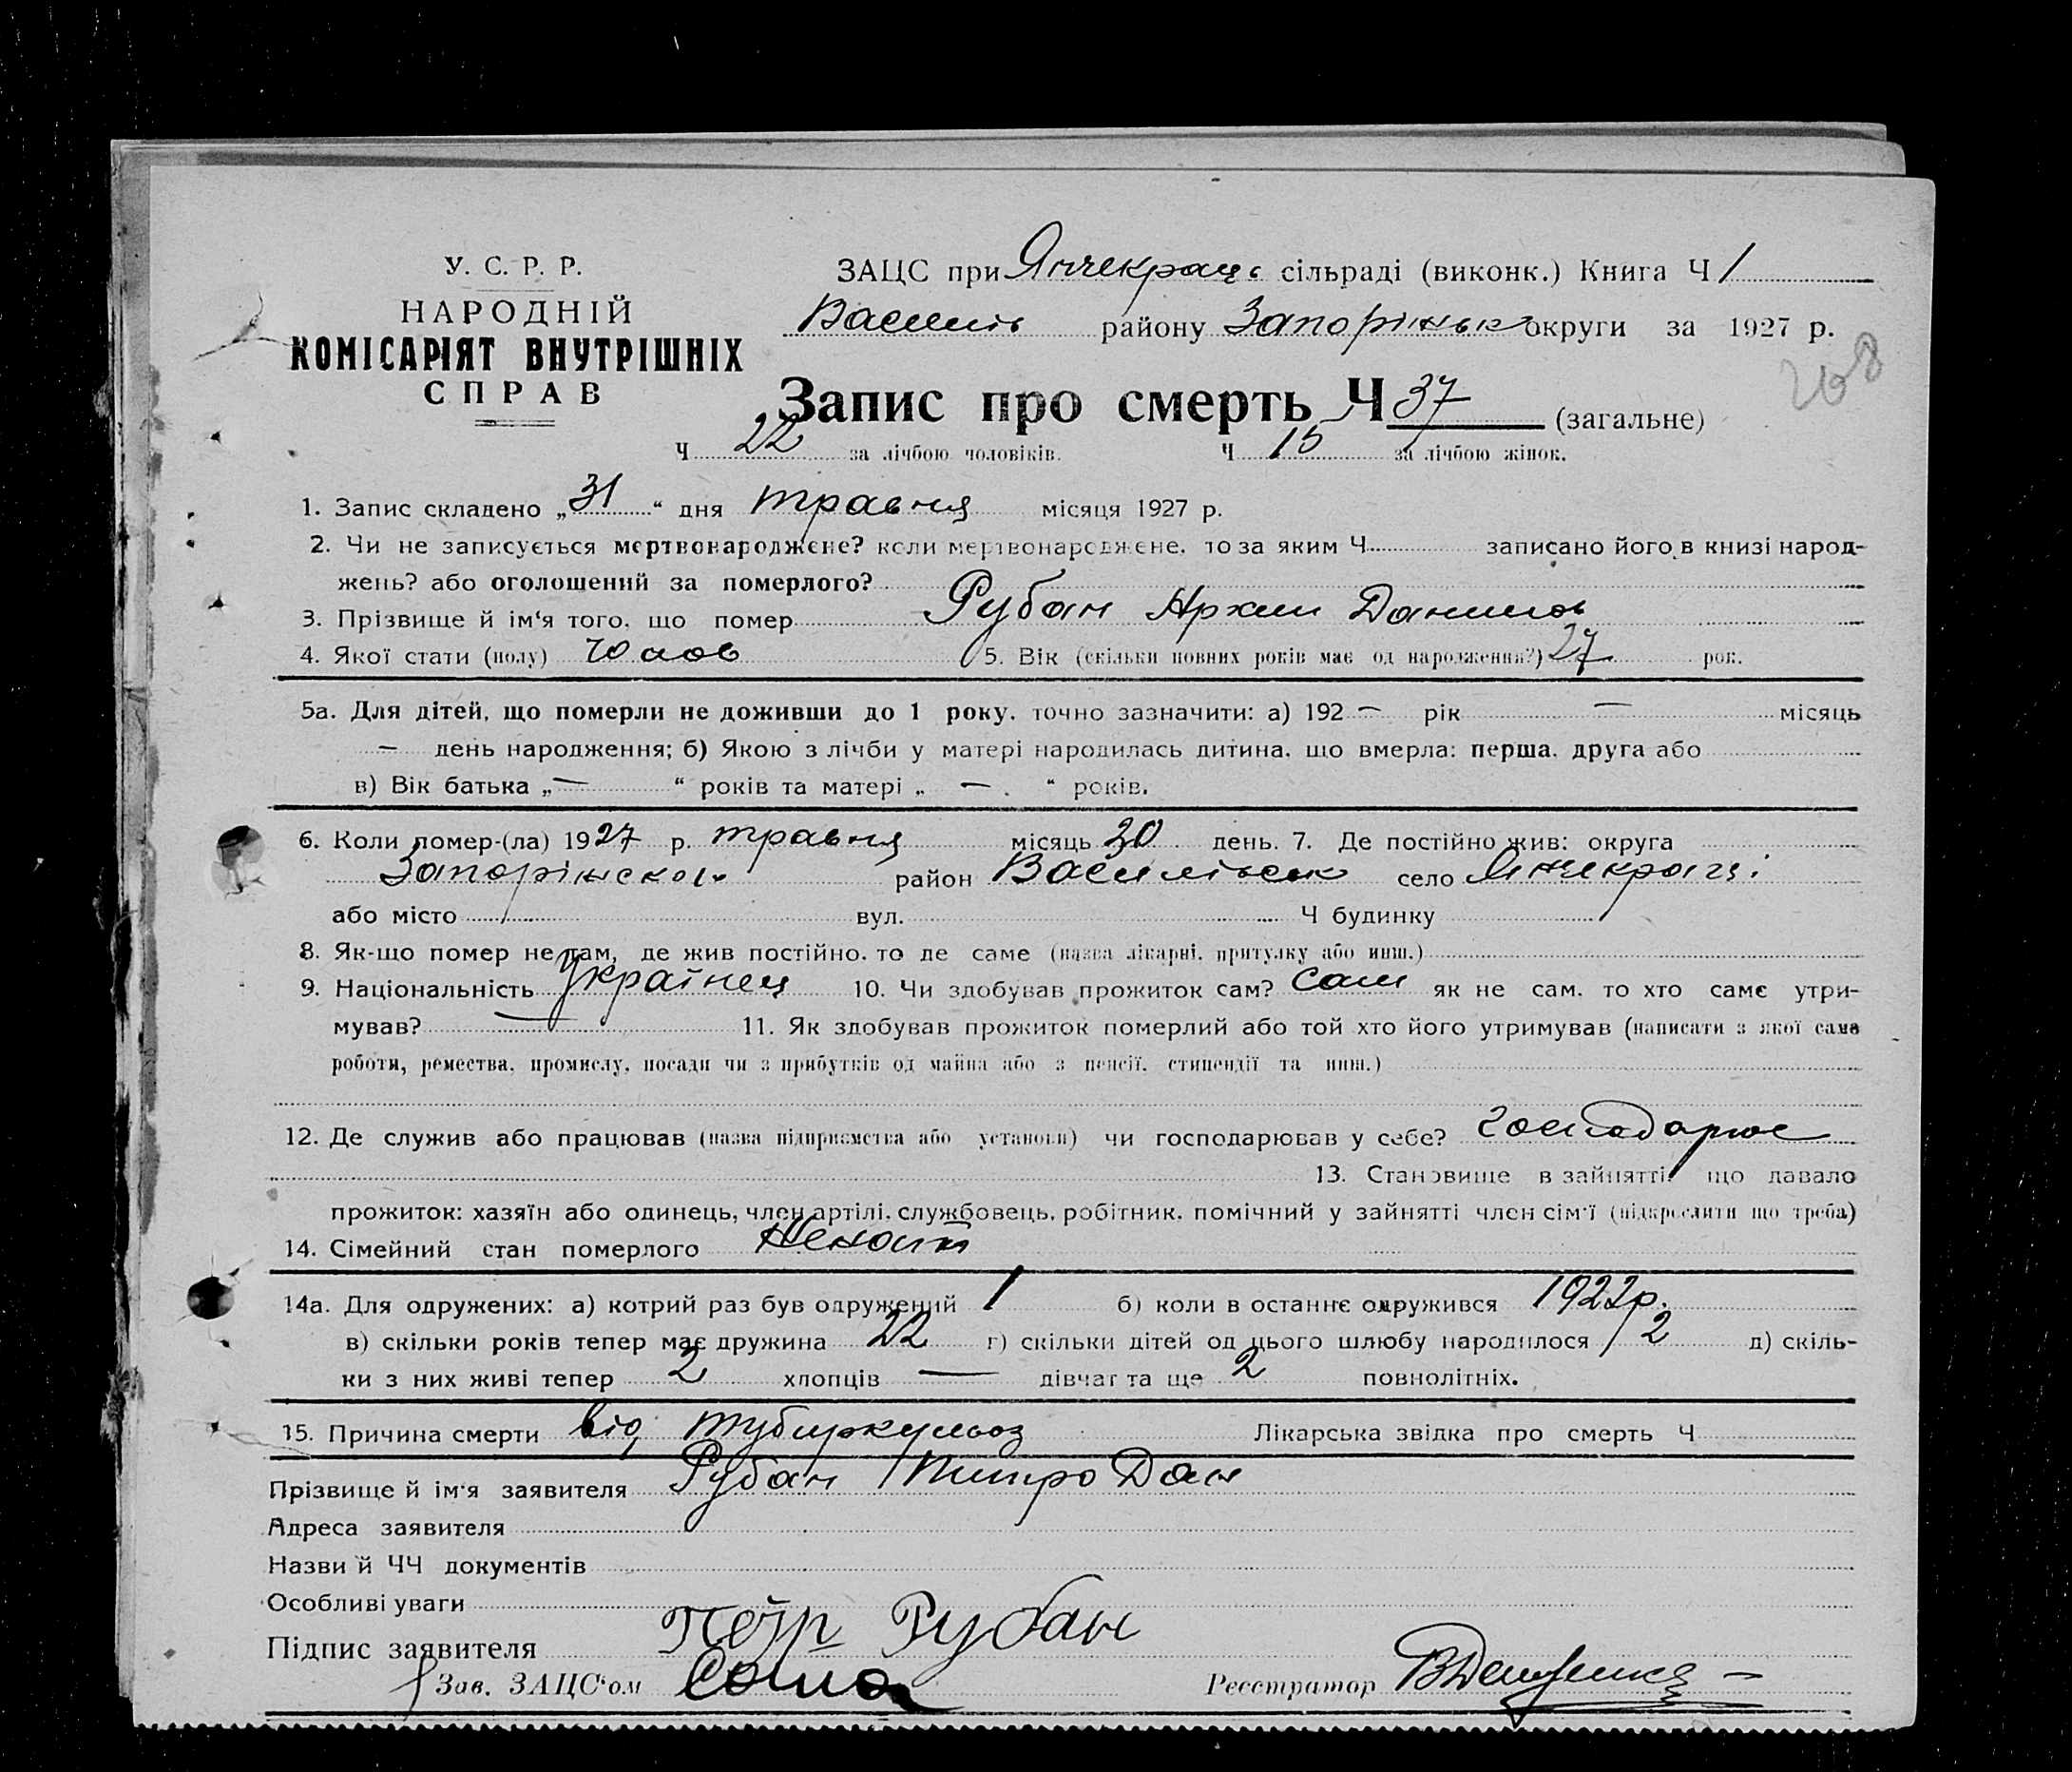 У. С. Р. Р.
НАРОДНІЙ
КОМІСАРІЯТ ВНУТРІШНІХ
СПРАВ
ЗАЦС при Янчекраць сільраді (виконк.) Книга Ч 1
Василів району Запоріньк округи за 1927 р.
268
Запис про смерть Ч 37 (загальне)
Ч 22 за лічбою чоловіків. Ч 15 за лічбою жінок.
1. Запис складено „31“ дня травня місяця 1927 р.
2. Чи не записується мертвонароджене? коли мертвонароджене, то за яким Ч записано його в книзі народ-
жень? або оголошений за померлого?
3. Прізвище й ім'я того, що помер Рубан Архип Данилов
4. Якої стати (полу) Чолов 5. Вік (скільки повних років має од народження?) 27 рок.
5а. Для дітей, що померли не доживши до 1 року, точно зазначити: а) 192 — рік — місяць
— день народження; б) Якою з лічби у матері народилась дитина, що вмерла: перша, друга або
в) Вік батька „—“ років та матері „—“ років.
6. Коли помер-(ла) 1927 р. травня місяць 30 день. 7. Де постійно жив: округа
Запорінской район Василівськ село Янчекраці
або місто вул. Ч будинку
8. Як-що помер не там, де жив постійно, то де саме (назва лікарні, притулку або инш.)
9. Національність Українец 10. Чи здобував прожиток сам? сам як не сам, то хто саме утри-
мував? — 11. Як здобував прожиток померлий або той хто його утримував (написати з якої саме
роботи, ремества, промислу, посади чи з прибутків од майна або з пенсії, стипендії та инш.)
12. Де служив або працював (назва підприємства або установи) чи господарював у себе? господарює
13. Становище в зайнятті що давало
прожиток: хазяїн або одинець, член артілі, службовець, робітник, помічний у зайнятті член сім'ї (підкреслити що треба)
14. Сімейний стан померлого Женат
14а. Для одружених: а) котрий раз був одружений 1 б) коли в останнє одружився 1922р.
в) скільки років тепер має дружина 22 г) скільки дітей од цього шлюбу народилося 2 д) скіль-
ки з них живі тепер 2 хлопців — дівчат та ще 2 повнолітніх.
15. Причина смерти від туберкульоз Лікарська звідка про смерть Ч
Прізвище й ім'я заявителя Рубан Дан
Адреса заявителя
Назви й ЧЧ документів
Особливі уваги
Підпис заявителя Петр Рубан
Зав. ЗАЦС'ом
Реєстратор